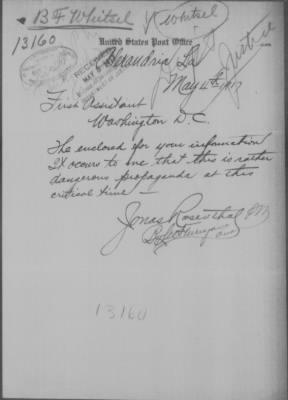 B F Whitsel
Whitsel
13160
United States Post Office
Alexandria La
Justice
RECEIVED
May 4th 1917
First Assistant
Washington D.C
The enclosed for your information
It occurs to me that this is rather
dangerous propaganda at this
critical time
Jonas Rosenthal PM
13160